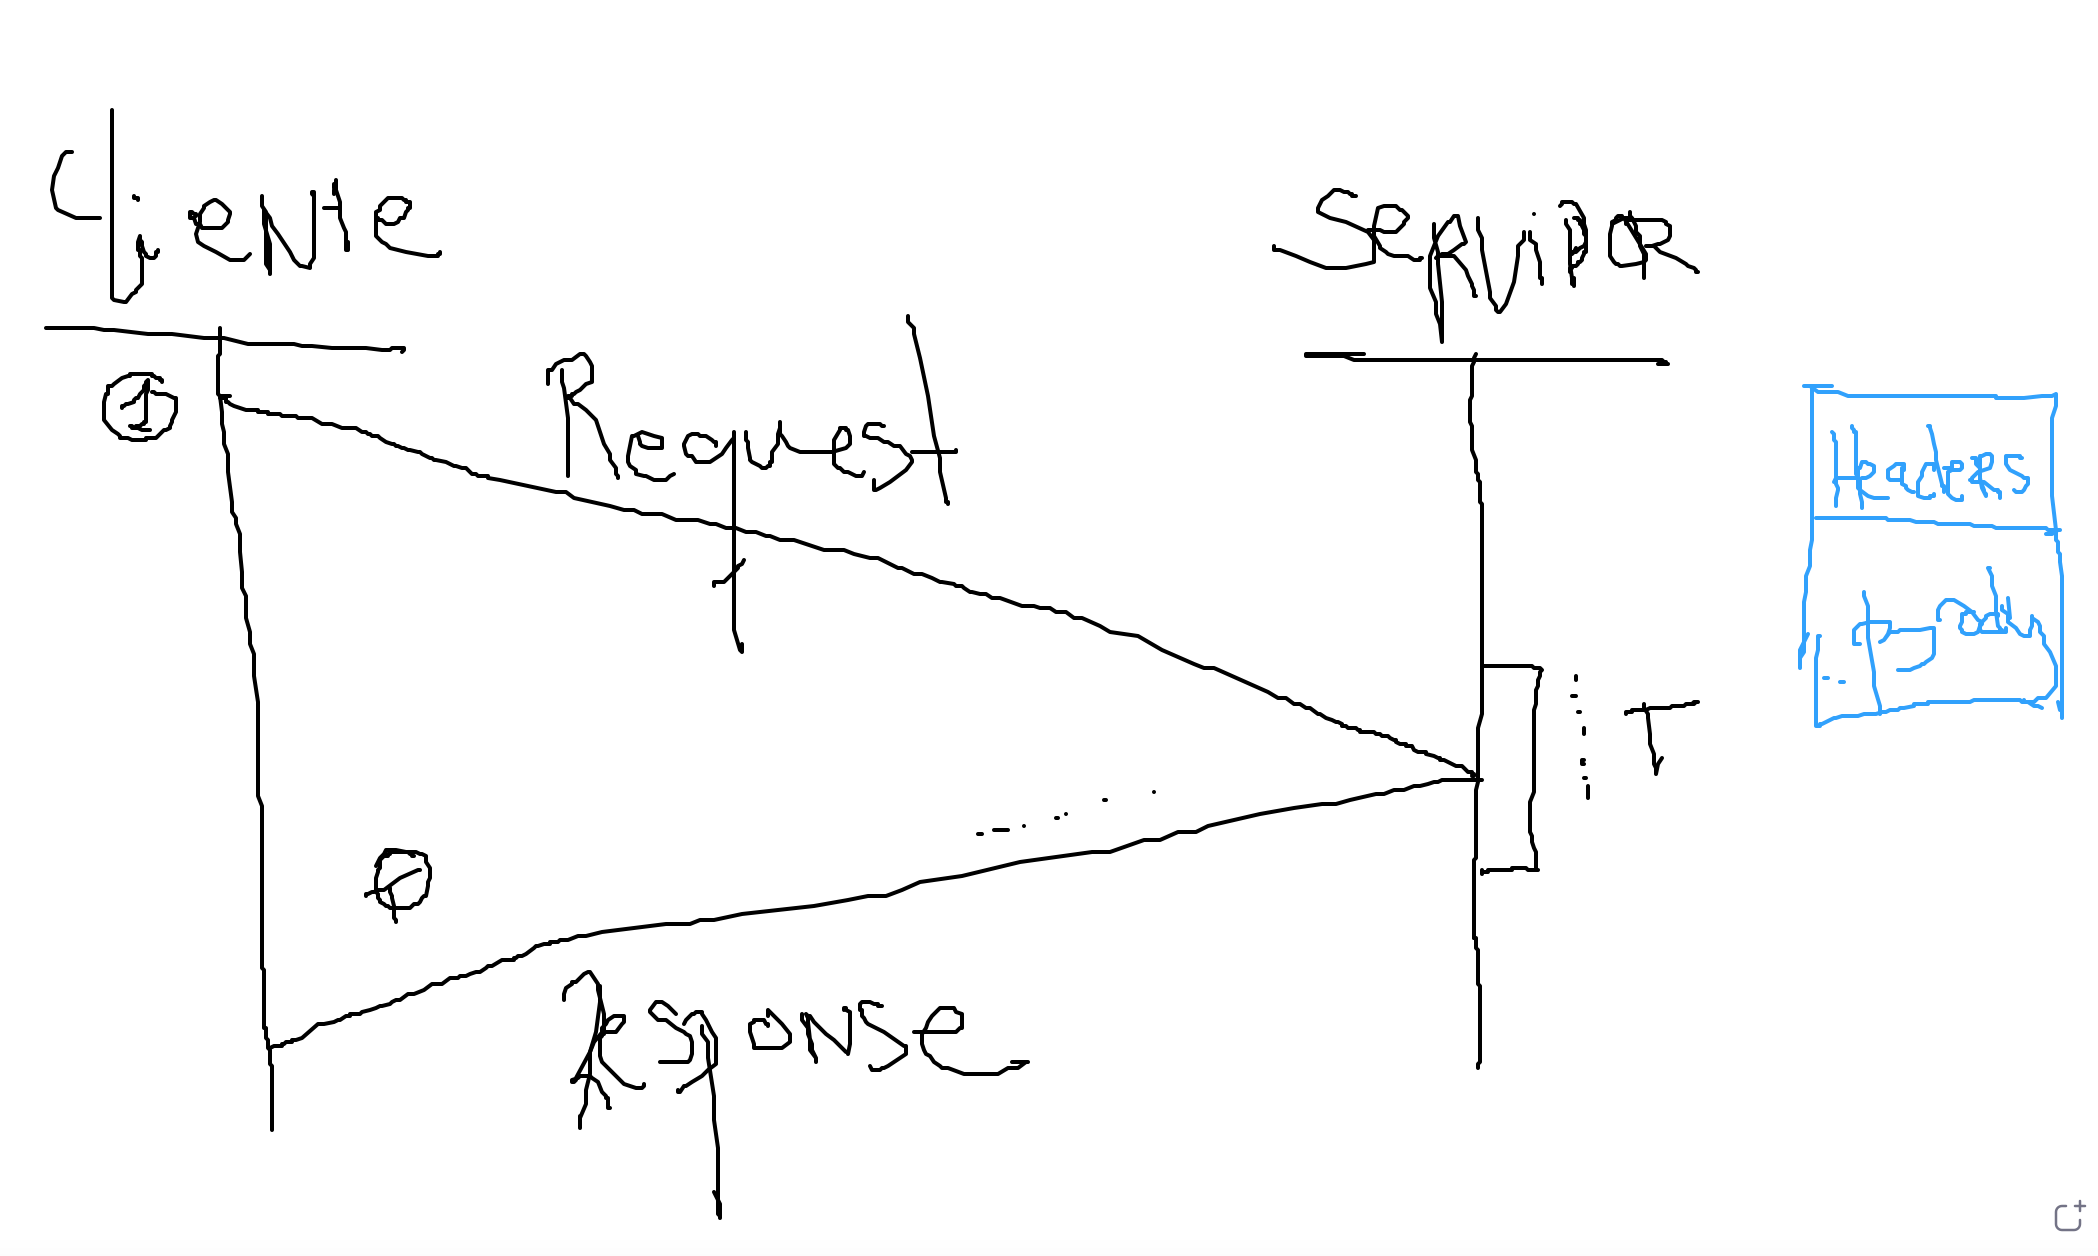 Cliente
Servidor
1
Request
Headers
body
T
Response